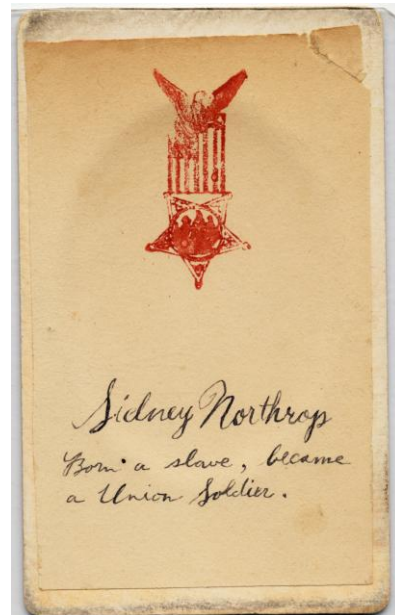 Sidney Northrop
Born a slave, became
a Union Soldier.